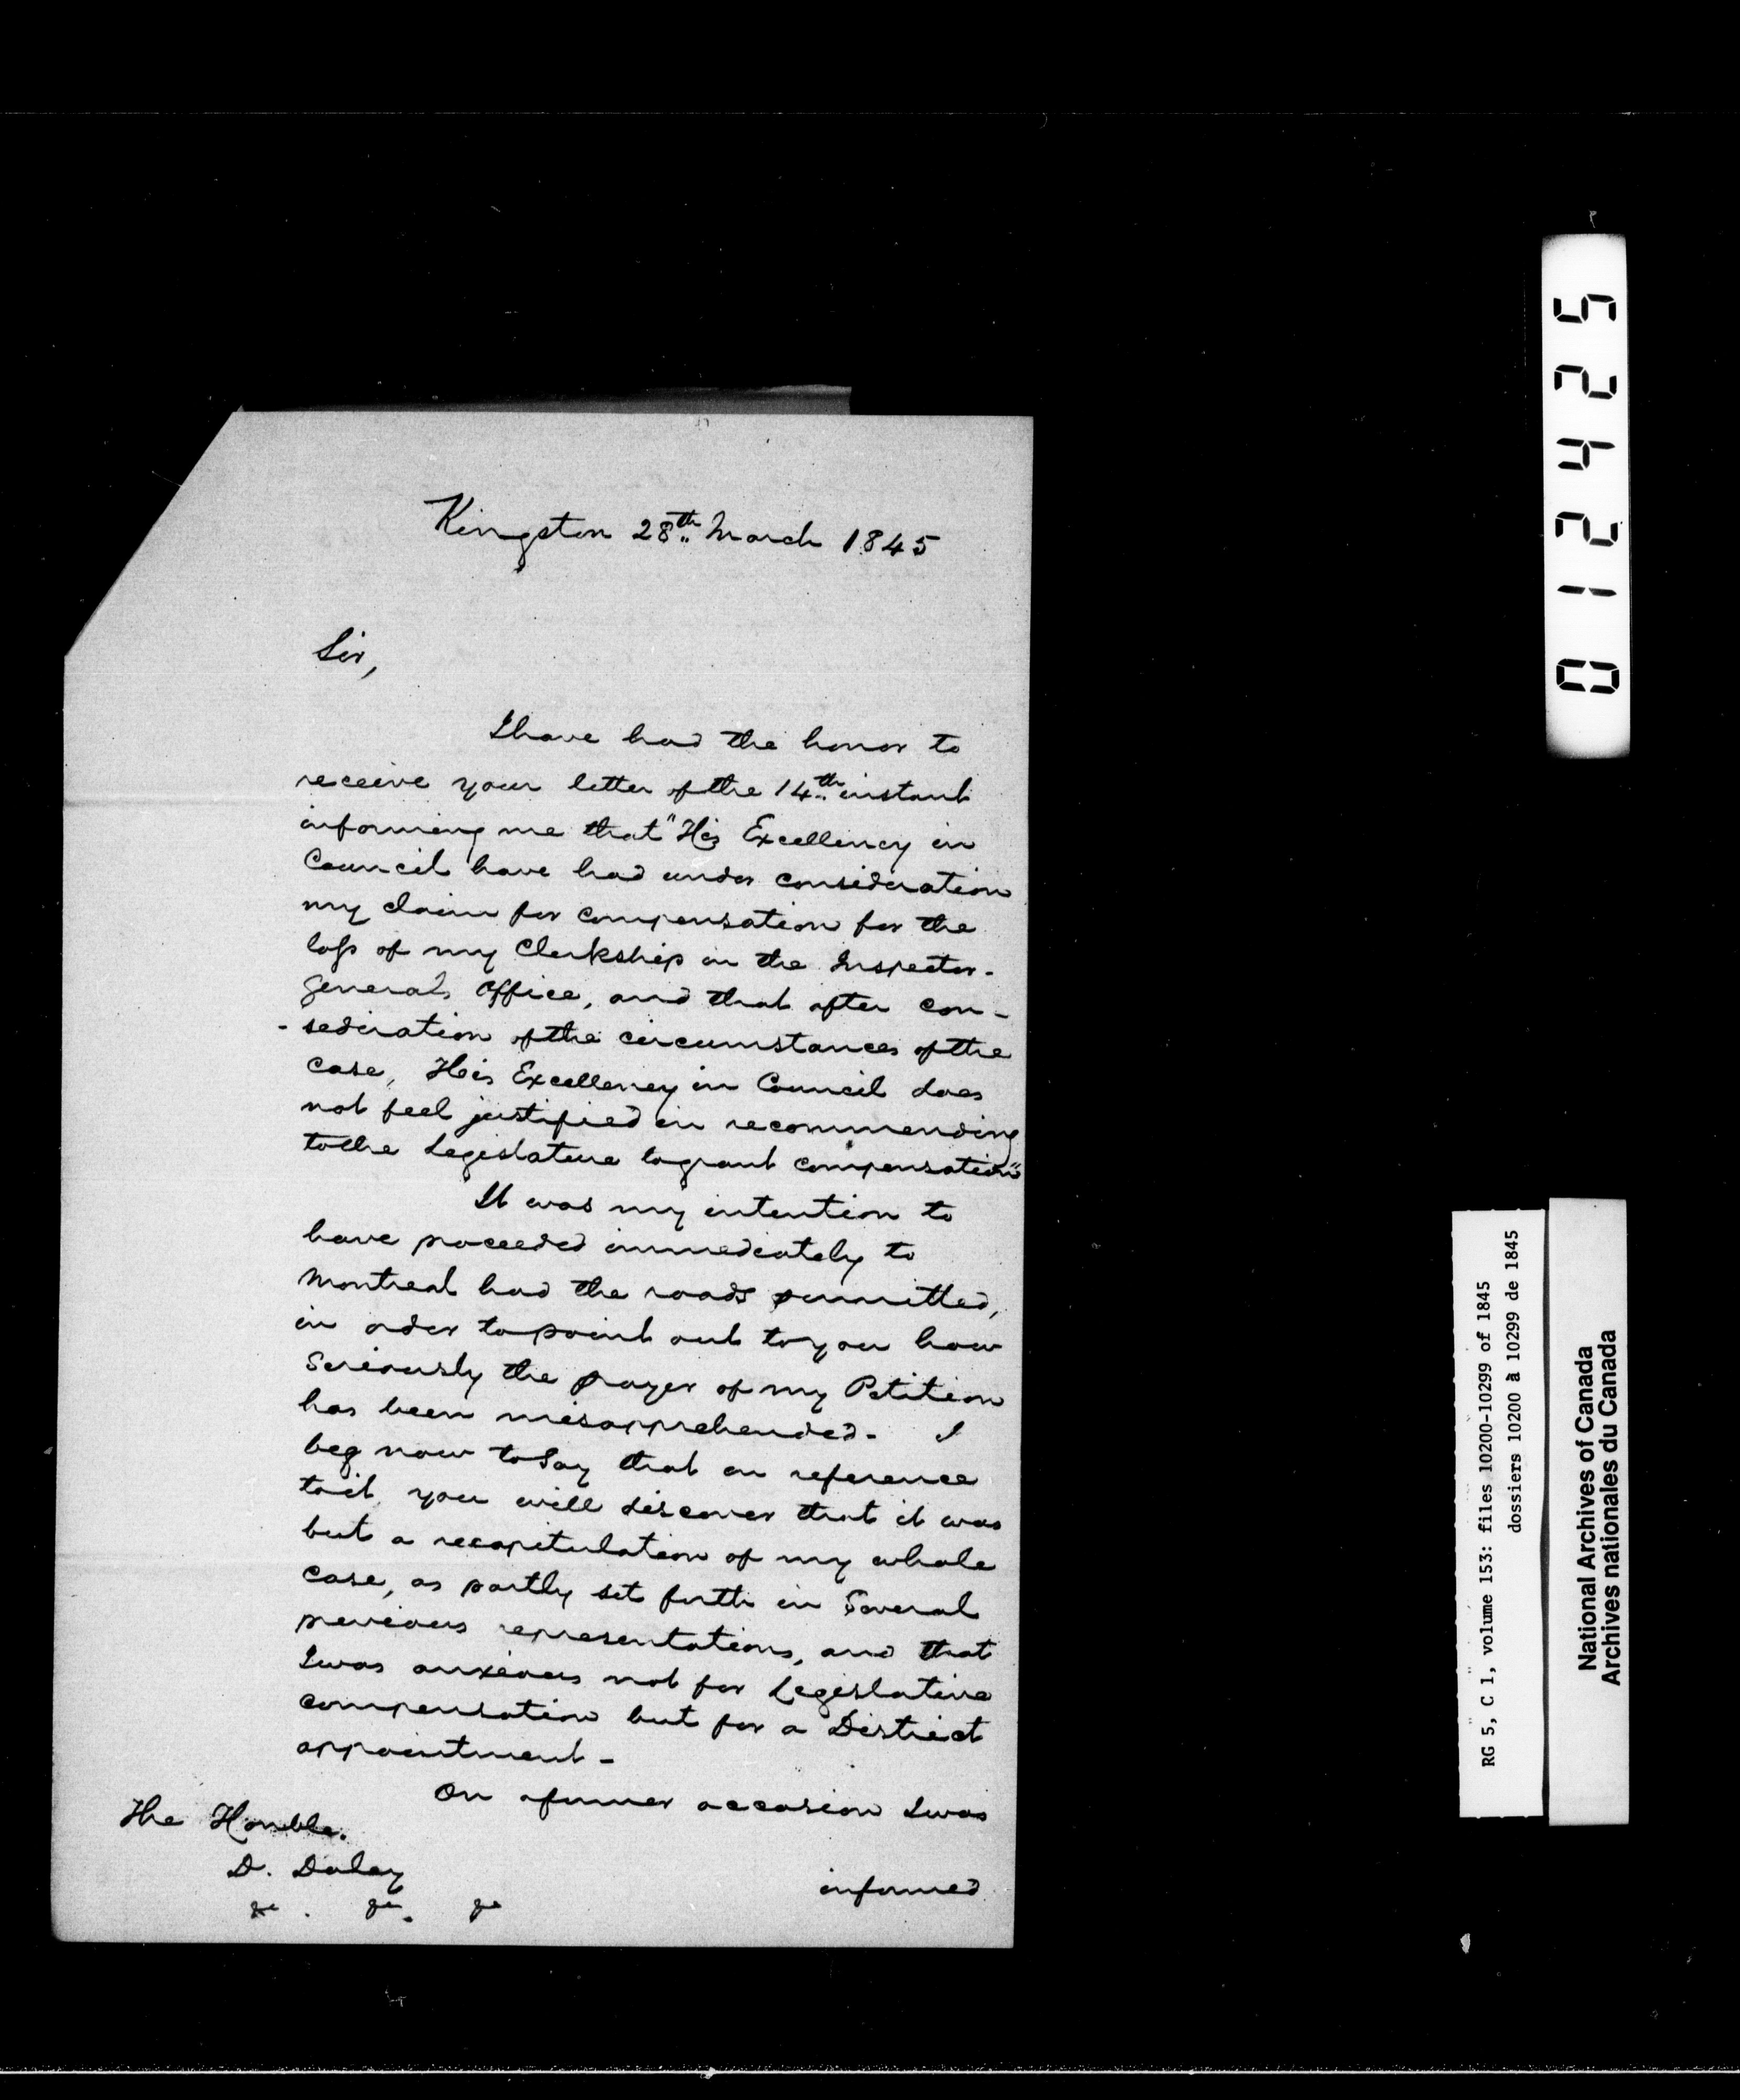 Kingston 28th March 1845
Sir,
I have had the honor to
receive your letter of the 14th instant
informing me that "His Excellency in
Council have had under consideration
my claim for compensation for the
loss of my Clerkship in the Inspector-
General's Office, and that after con-
-sederation of the circumstances of the
case, His Excellency in Council does
not feel justified in recommending
to the Legislature to grant compensation"
It was my intention to
have proceeded immediately to
Montreal had the roads permitted,
in order to point out to you how
seriously the prayer of my Petition
has been misapprehended - I
beg now to say that on reference
to it you will discover that it was
but a recapitulation of my whole
case, as partly set forth in several
previous representations, and that
I was anxious not for Legislative
compensation but for a District
appointment -
On a former occasion I was
The Honble.
D. Daly
&c . &c. &c
informed
012425
RG 5, C 1, volume 153: files 10200-10299 of 1845
dossiers 10200 à 10299 de 1845
National Archives of Canada
Archives nationales du Canada